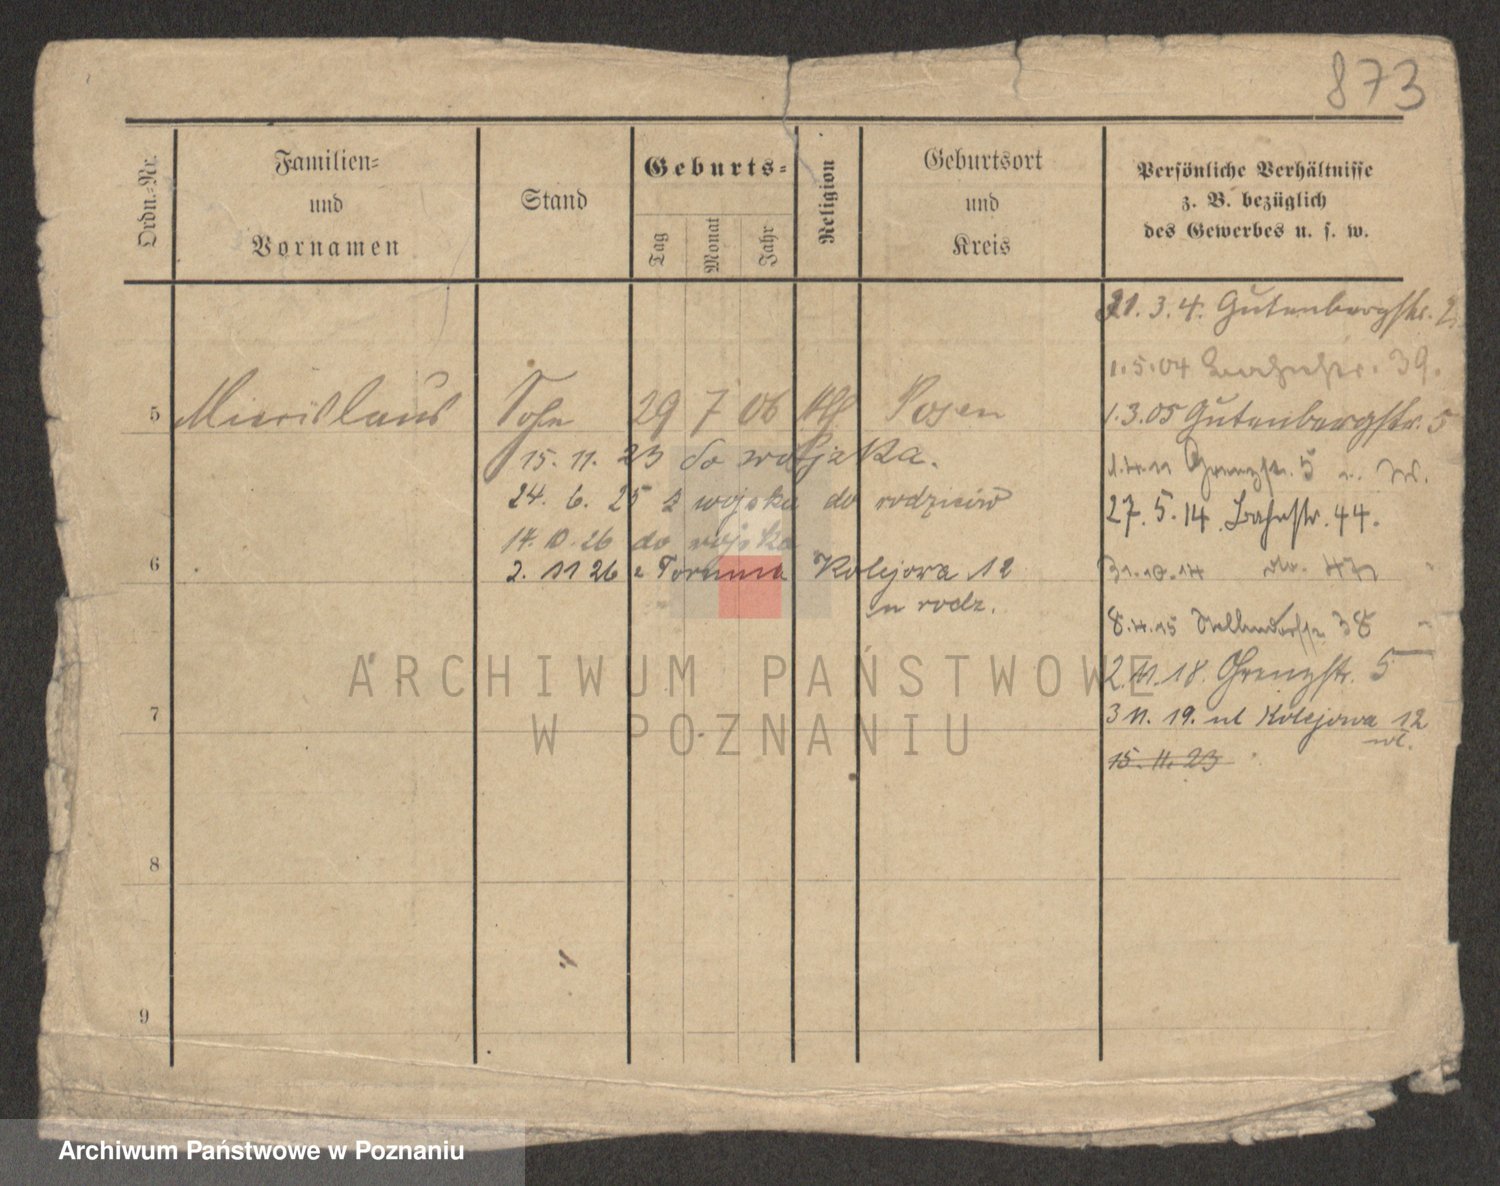 873
Ordn.-Nr.
Familien-
und
Vornamen
Stand
Geburts-
Tag
Monat
Jahr
Religion
Geburtsort
und
Kreis
Persönliche Verhältnisse
z. B. bezüglich
des Gewerbes u. s. w.
21.3.4. Gutenbergstr.
1.5.04 Bahnstr. 39.
5 Miecislaus Sohn 29 7 06 Posen
1.3.05 Gutenbergstr. 5
15. 11. 23 do wojska.
1.4.11 Grenzstr. 5
24. 6. 25 z wojska do rodziców
27.5.14 Bahnstr. 44.
14.10.26 do wojska
6
2. 11 26 z Torunia Kolejowa 12
31.10.14
rodz.
8.4.15 38
2.11.18. Grenzstr. 5
7
3 11. 19. ul Kolejowa 12
wł.
15.11.23
8
9
ARCHIWUM PAŃSTWOWE
W POZNANIU
Archiwum Państwowe w Poznaniu